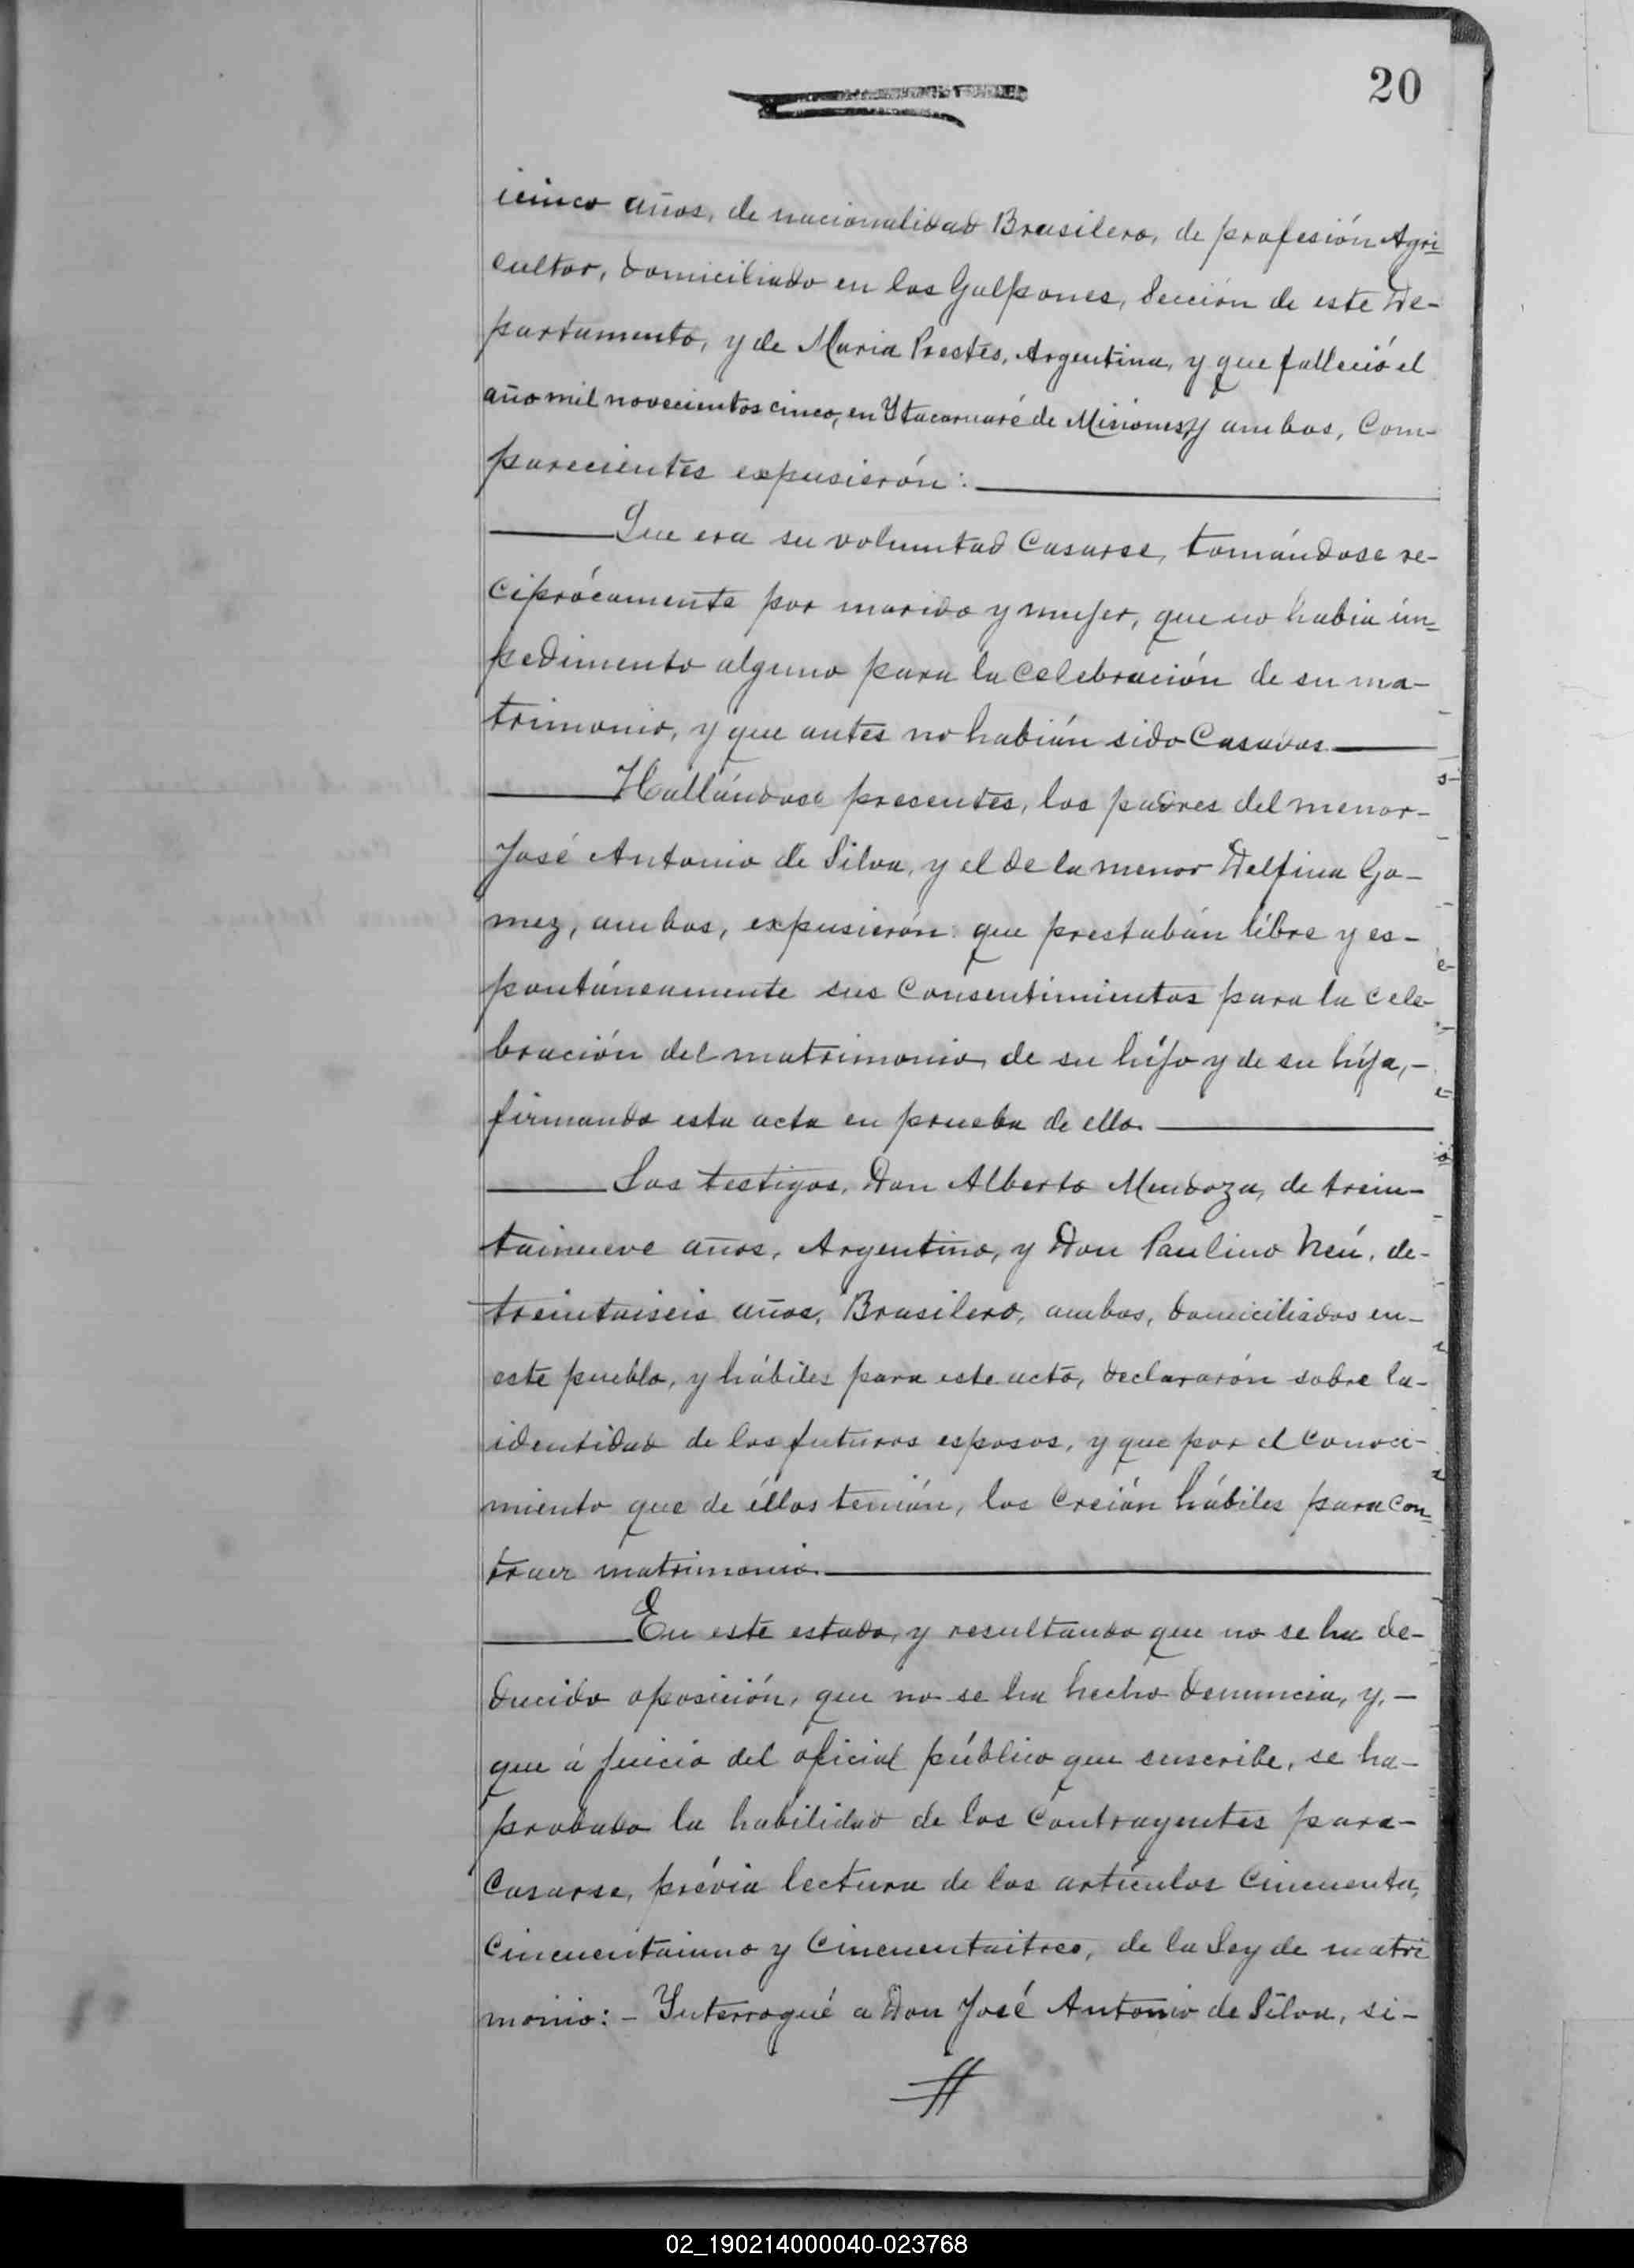 20
icinco años, de nacionalidad Brasilero, de profesión Agri=
cultor, domiciliado en los Galpones, Sección de este De-
partamento, y de Maria Prestes, Argentina, y que falleció el
año mil novecientos cinco, en Ytacaruaré de Misiones, y ambos, Com-
parecientes expusierón:
Que era su voluntad Casarse, tomándose re-
ciprócamente por marido y mujer, que no habia ím=
pedimento alguno para la Celebración de su ma-
trimonio, y que antes no habián sido Casados.
Hallándose presentes, los padres del menor-
José Antonio de Silva, y el de la menor Delfina Go-
mez, ambos, expusierón: que prestabán líbre y es-
pontáneamente sus Consentimientos para la cele-
bración del matrimonio, de su híjo y de su híja,-
firmando esta acta en prueba de ello.
Los testigos, Don Alberto Mendoza, de trein-
tainueve años, Argentino, y Don Paulino Neú, de-
treintaiseis años, Brasilero, ambos, domiciliados en-
este pueblo, y hábiles para este acto, declararón sobre la-
identidad de los futuros esposos, y que por el Conoci-
miento que de éllos tenián, los Creián hábiles para Con=
traer matrimonio.
En este estado, y resultando que no se ha de-
ducido oposición, que no se ha hecho denuncia, y,-
que á juicio del oficial público que suscribe, se ha-
probado la habilidad de los Contrayentes para-
Casarse, prévia lectura de los artículos Cincuenta,
Cincuentaiuno y Cincuentaitres, de la Ley de matri
monio:- Ynterrogué a Don José Antonio de Silva, si-
02_190214000040-023768